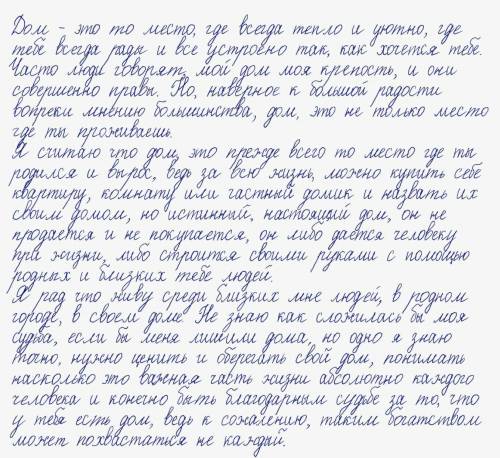 Дом - это то место, где всегда тепло и уютно, где
тебе всегда рады и все устроено так, как хочется тебе.
Часто люди говорят, мой дом моя крепость, и они
совершенно правы. Но, наверное к большой радости
вопреки мнению большинства, дом, это не только место
где ты проживаешь.
Я считаю что дом, это прежде всего то место где ты
родился и вырос, ведь за всю жизнь, можно купить себе
квартиру, комнату или частный домик и назвать их
своим домом, но истинный, настоящий дом, он не
продается и не покупается, он либо дается человеку
при жизни, либо строится своими руками с помощью
родных и близких тебе людей.
Я рад что живу среди близких мне людей, в родном
городе, в своем доме. Не знаю как сложилась бы моя
судьба, если бы меня лишили дома, но одно я знаю
точно, нужно ценить и оберегать свой дом, понимать
насколько это важная часть жизни абсолютно каждого
человека и конечно быть благодарным судьбе за то, что
у тебя есть дом, ведь к сожалению, таким богатством
может похвастаться не каждый.